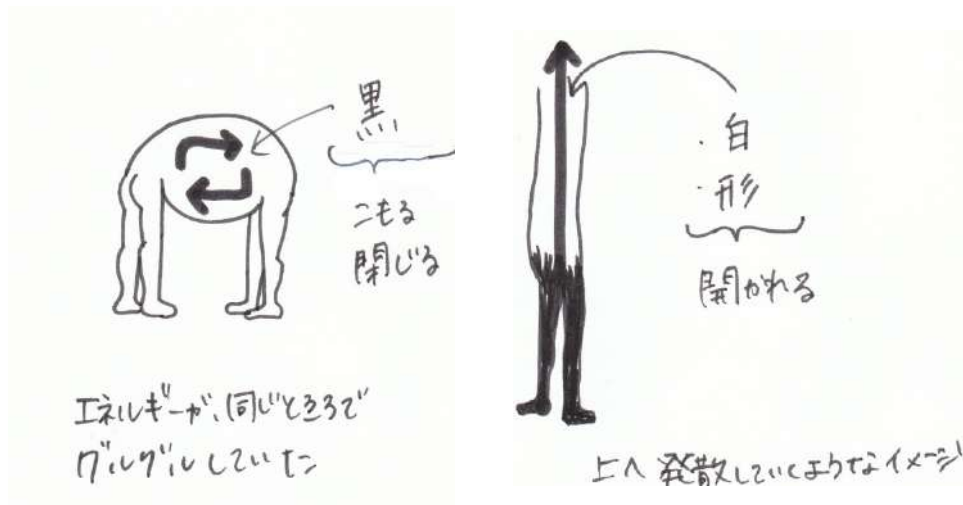 黒
こもる
閉じる
エネルギーが、同じところで
グルグルしていた
・白
・形
開かれる
上へ発散していくようなイメージ